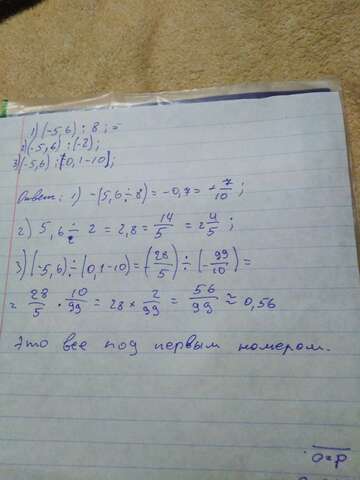 1) (-5,6) ÷ 8 ; =
2) (-5,6) : (-2);
3) (-5,6) : (0,1-10);
Ответ: 1) -(5,6 ÷ 8) = -0,7 = -7/10 ;
2) 5,6 ÷ 2 = 2,8 = 14/5 = 2 4/5 ;
3) (-5,6) ÷ (0,1-10) = (-28/5) ÷ (-99/10) =
= 28/5 · 10/99 = 28 × 2/99 = 56/99 ≈ 0,56
Это все под первым номером.